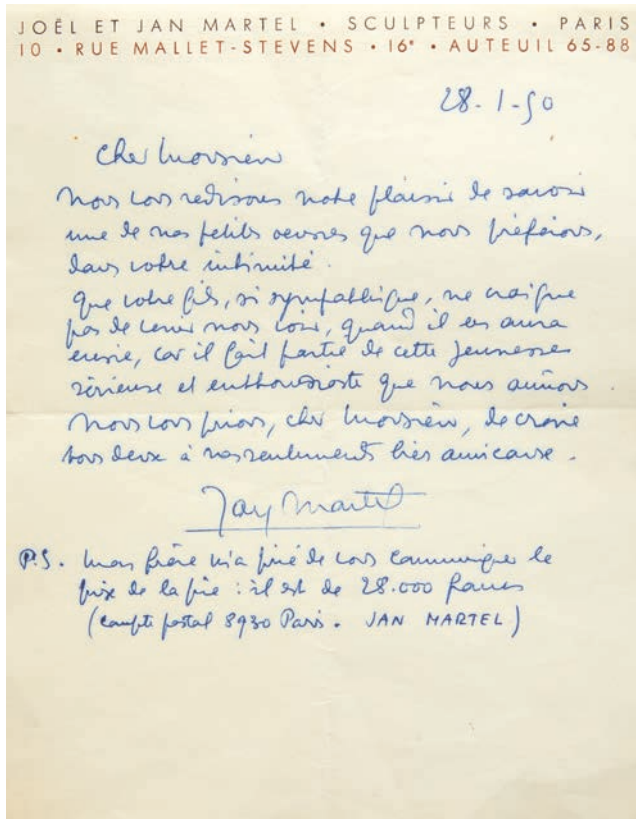 JOËL ET JAN MARTEL • SCULPTEURS • PARIS
10 • RUE MALLET-STEVENS • 16e • AUTEUIL 65-88
28-1-50
Cher Monsieur
Nous vous redisons notre plaisir de savoir
une de nos petites oeuvres que nous préférions,
dans votre intimité.
Que votre fils, si sympathique, ne craigne
pas de venir nous voir, quand il en aura
envie, car il fait partie de cette jeunesse
sérieuse et enthousiaste que nous aimons.
Nous vous prions, cher Monsieur, de croire
tous deux à nos sentiments très amicaux.
Jan Martel
P.S. Mon frère m'a prié de vous communiquer le
prix de la pie : il est de 28.000 francs
(compte postal 8930 Paris. JAN MARTEL)